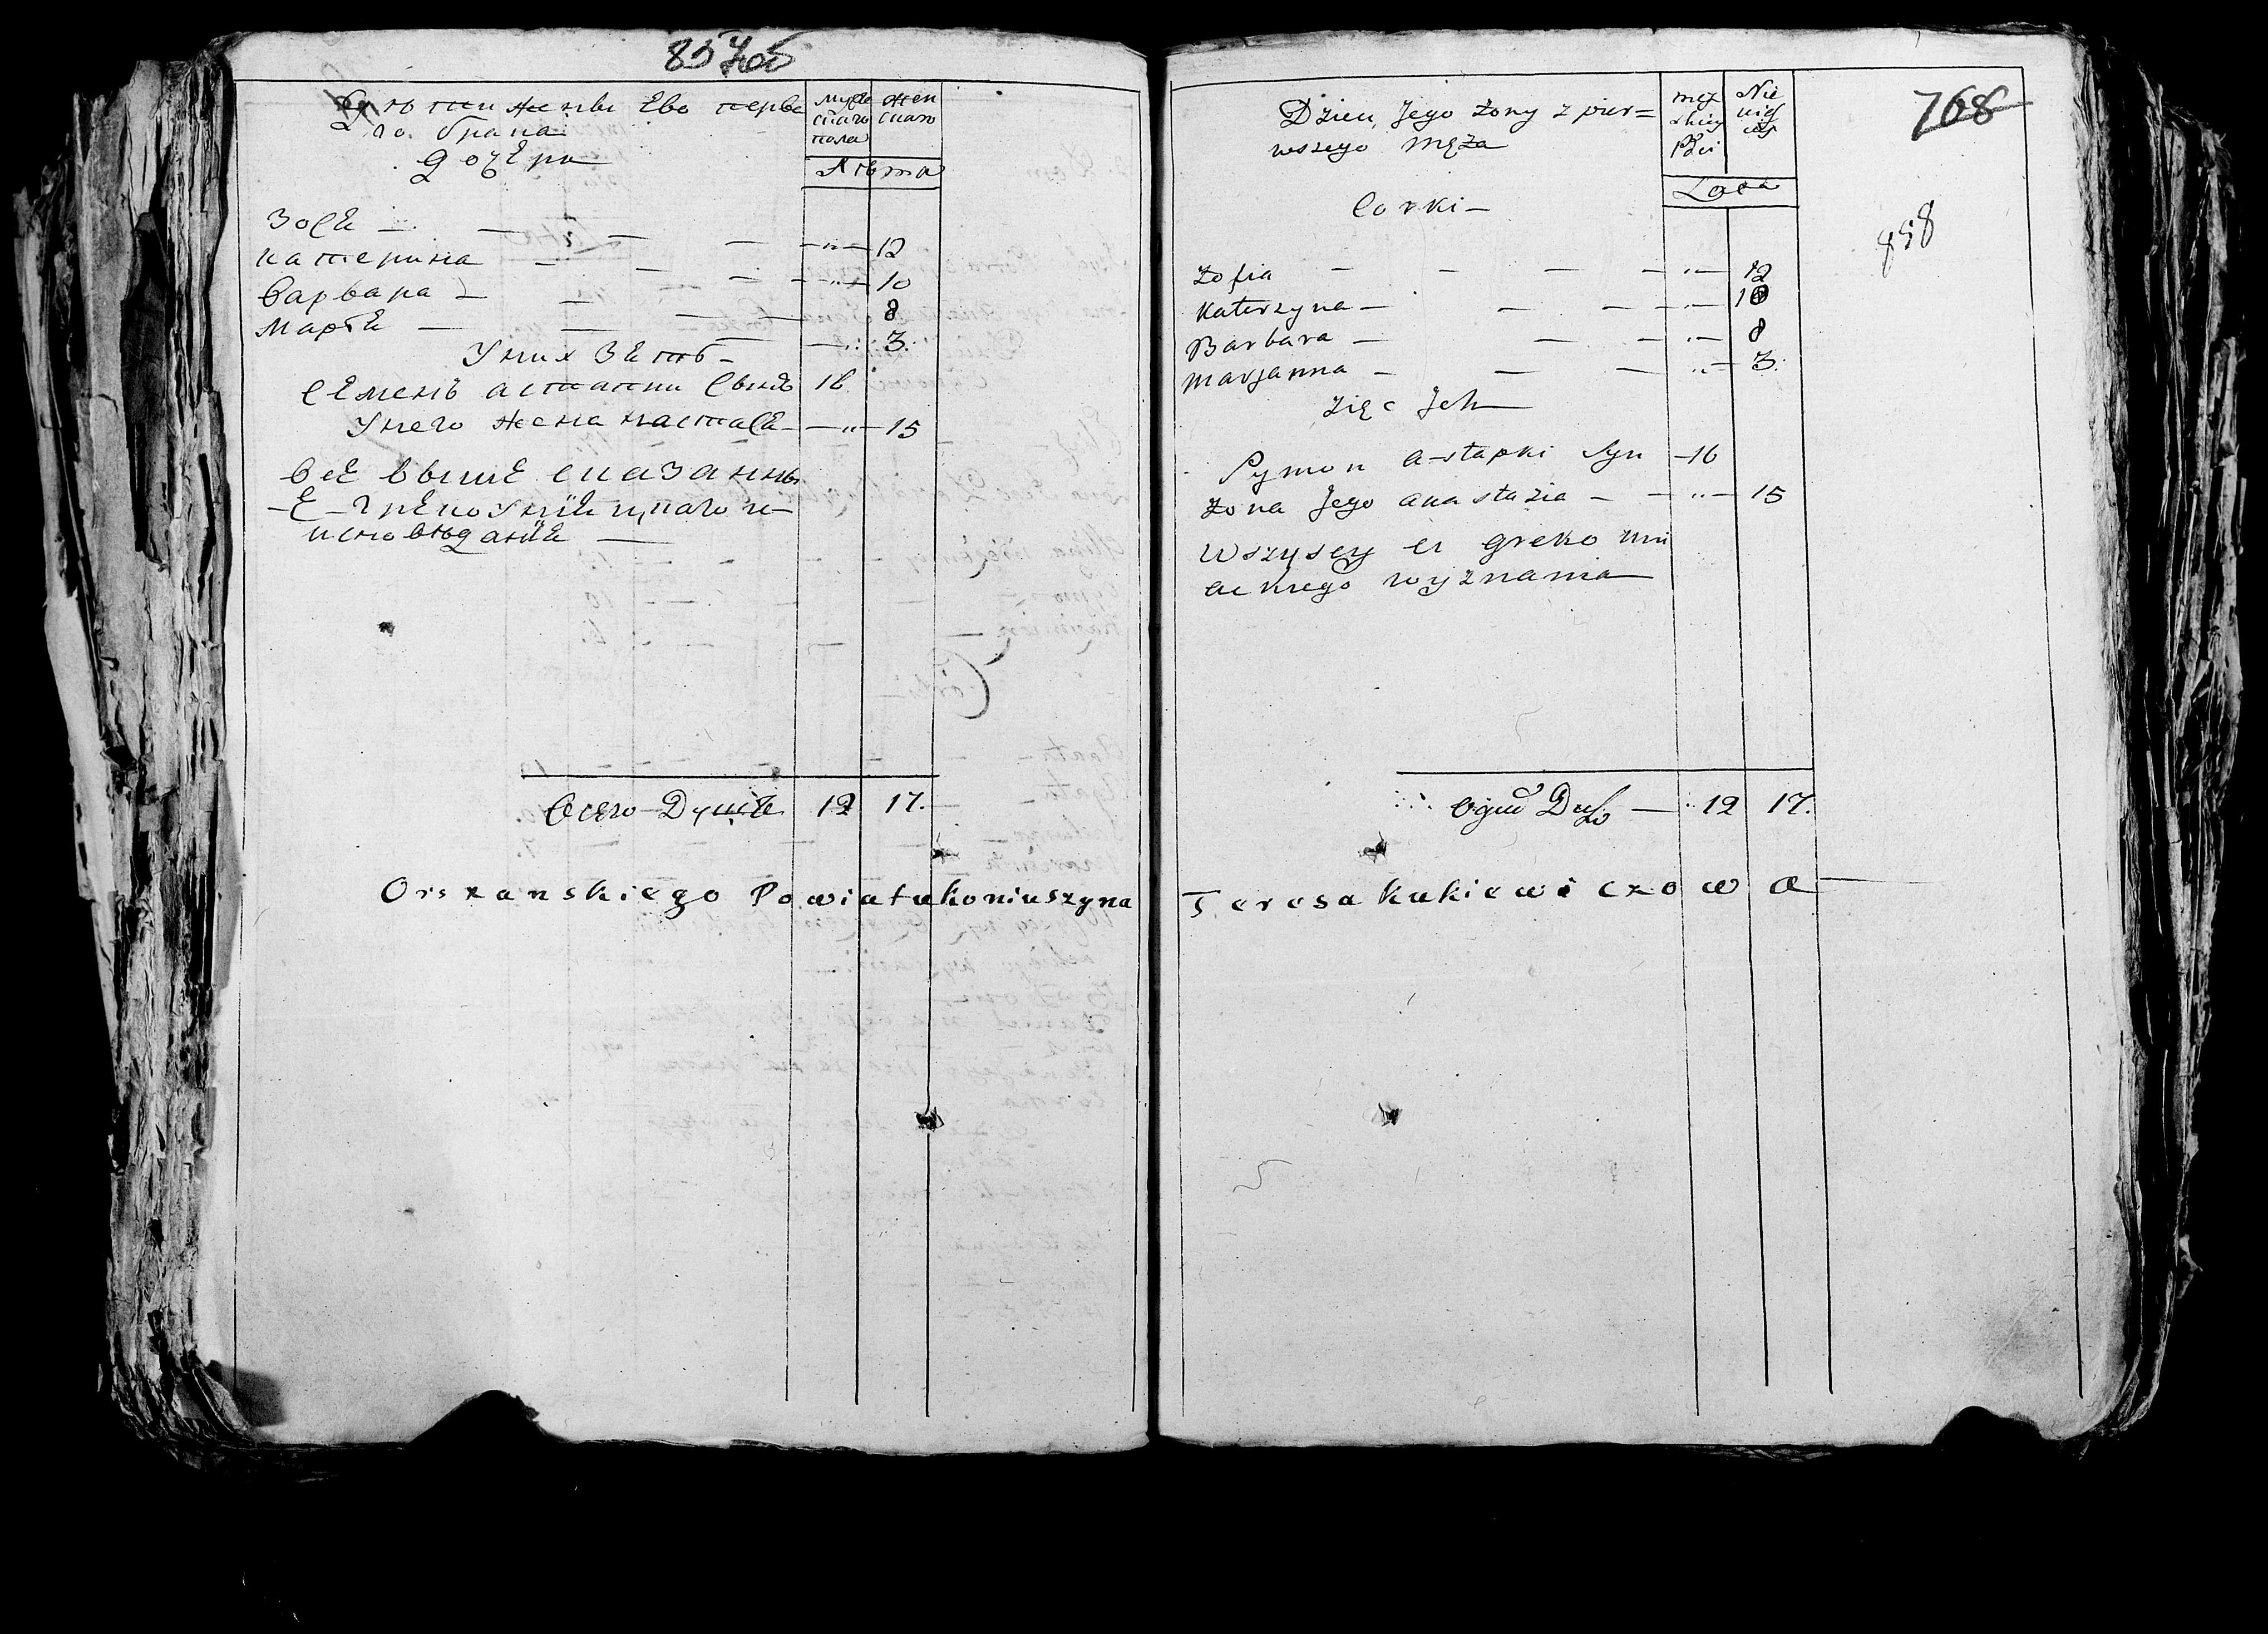 857об
Дѣти жены Ево перва
го брака
дочери
муже
скаго
пола
жен
скаго
Лѣта
Зосѣ — — — — —„— 12
Катерина — — — —„— 10
Варвара — — — 8
Марьѣ — — — —„— 3.
У них Зѣть —
Семенъ астапки Сынъ 16
У него жена настасѣ — —„— 15
Всѣ выше сказанны
Е — Грѣкоунiицкаго и—
исповѣданiѣ —
Всего — Душъ 12 17.
Orszanskiego Powiatu Koniuszyna
768
858
Dzieci Jego Żony z pier=
wszego Męża
męz
skiey
Płci
Nie
wię
Lata
Corki —
Zofia — — — — „— 12
Katerzyna — — — „— 10
Barbara — — — „— 8
Marjanna — — — „— 3.
Zięc Jch —
Symon Astapki Syn — 16
Żona Jego Anastazia — — „— 15
Wszyscy ci greko uni
ackiego wyznania —
Oguł Dusz — 12 17.
Teresa Kukiewiczowa —